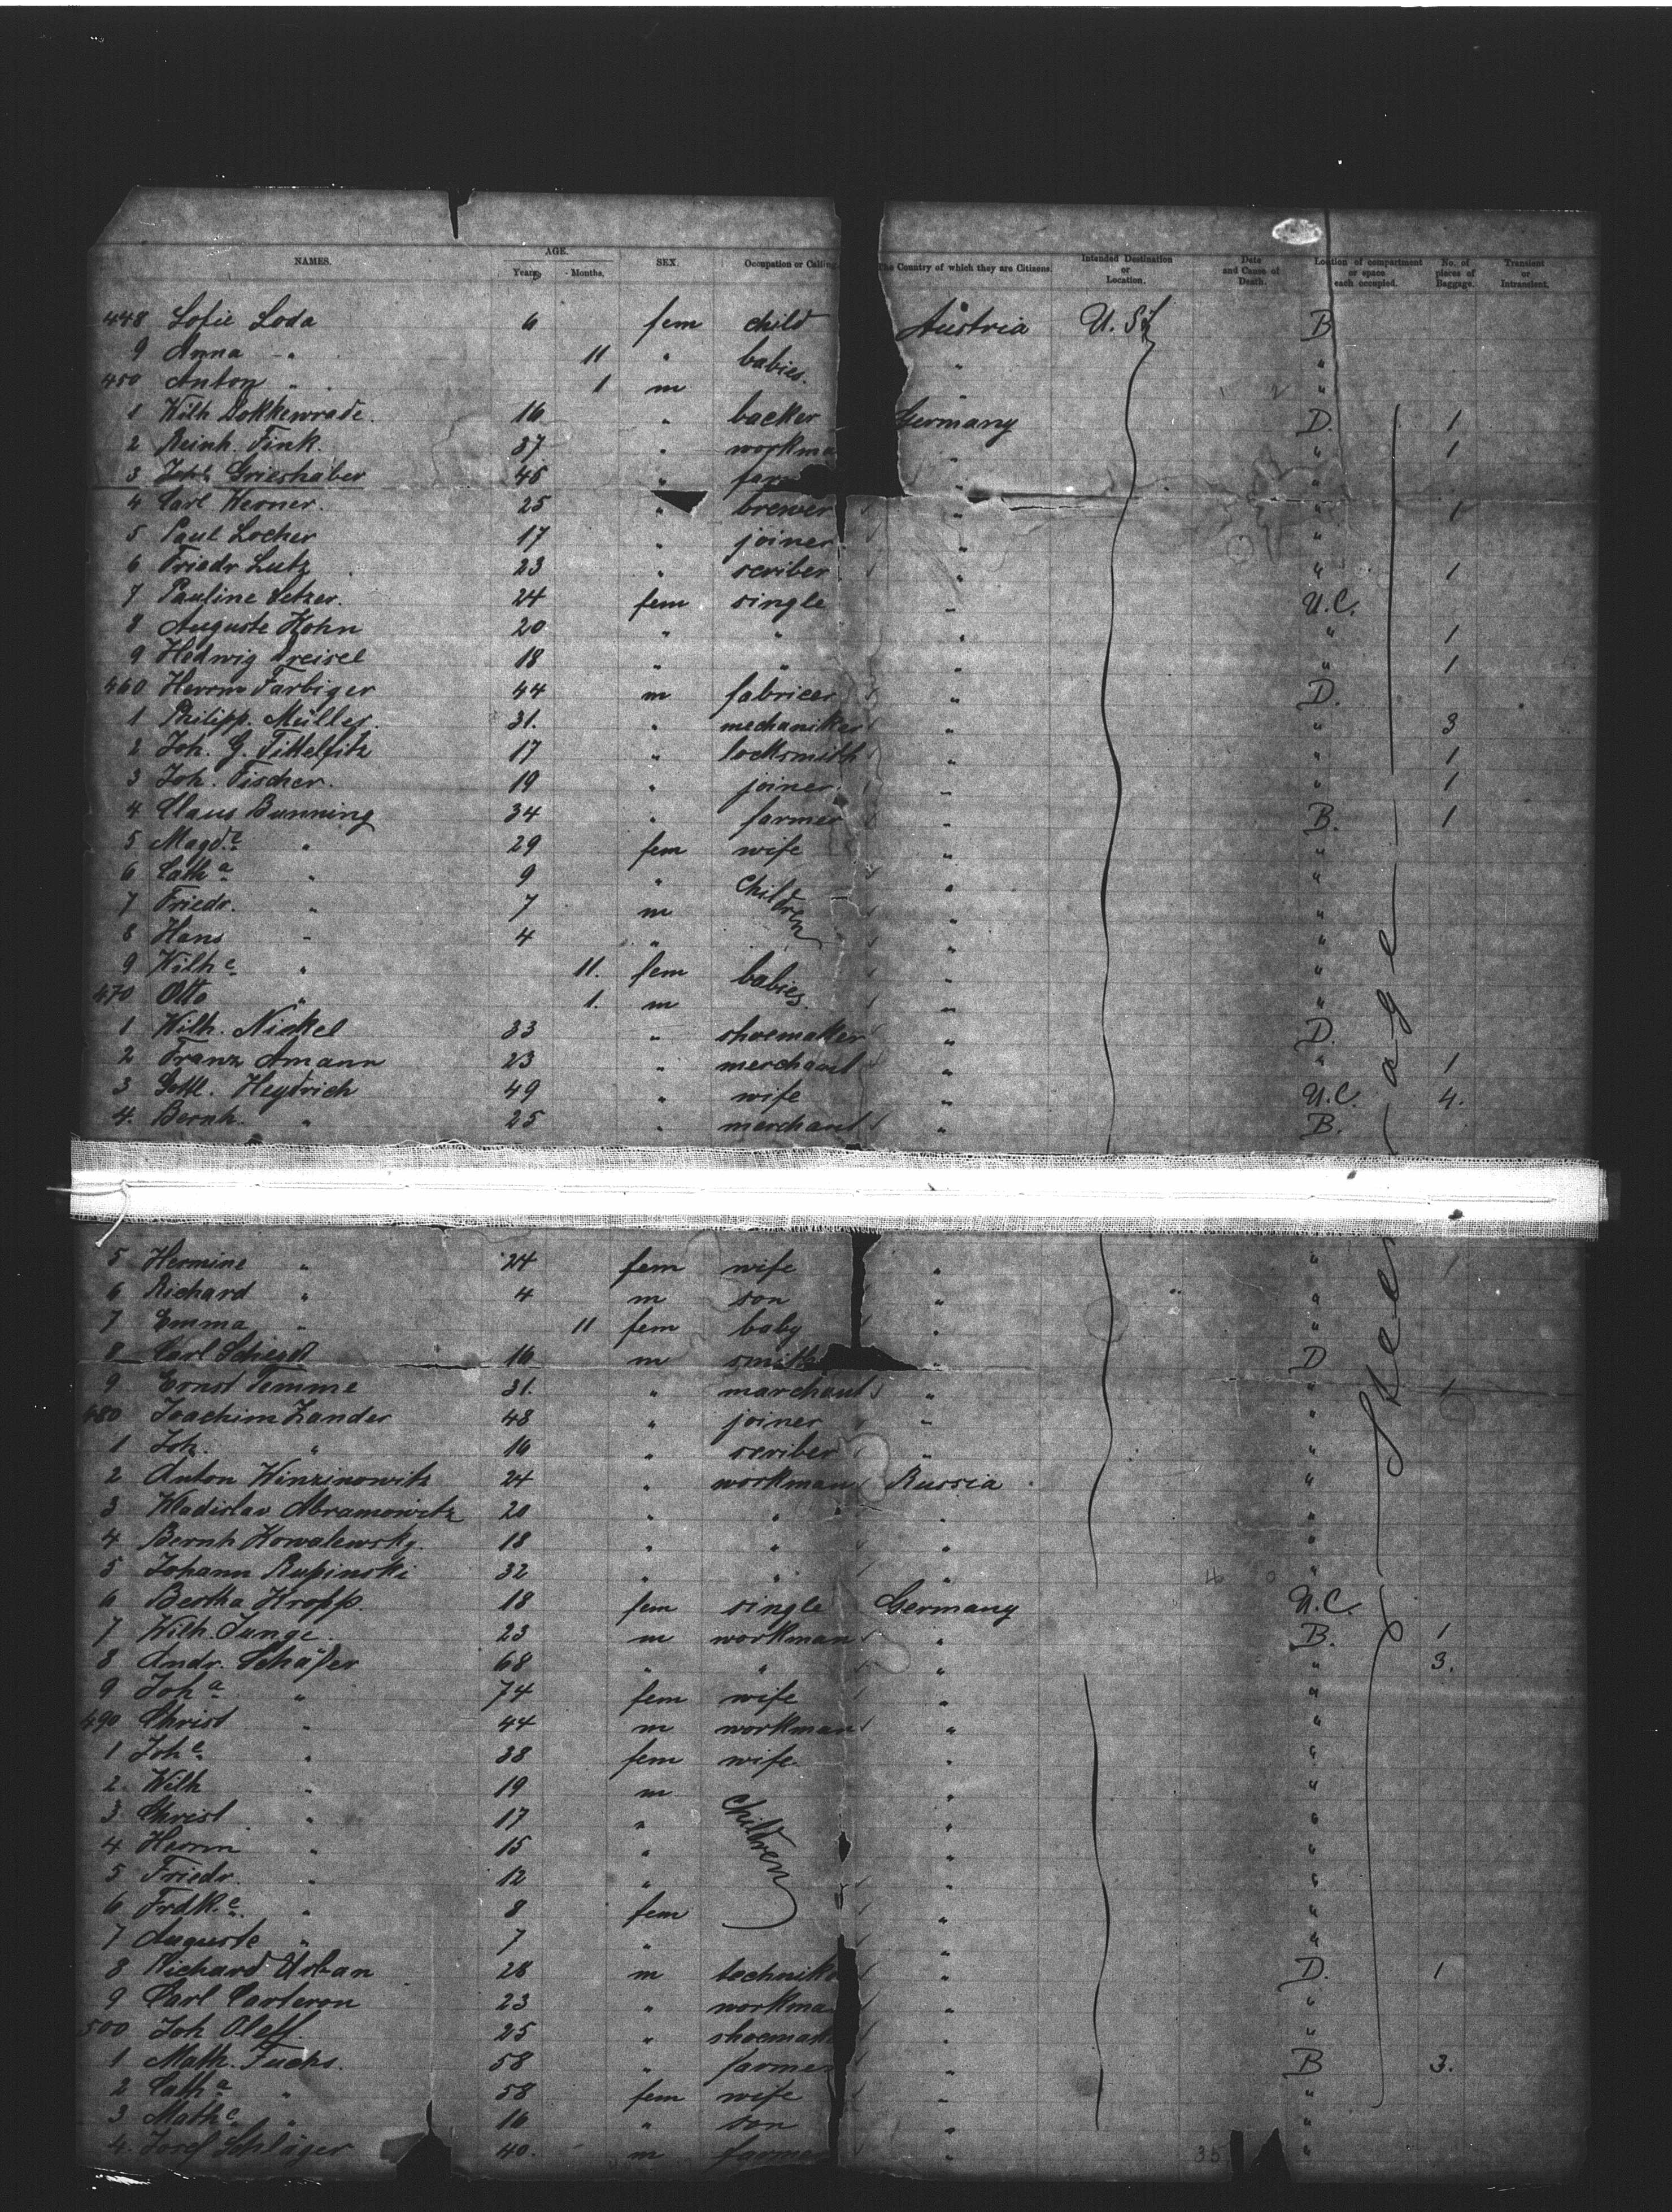 NAMES. AGE. Years, Months. SEX. Occupation or Calling. The Country of which they are Citizens. Intended Destination or Location. Date and Cause of Death. Location of compartment or space each occupied. No. of pieces of Baggage. Transient or Intransient.
448 Sofie Loda 6 fem child Austria U. St. B
9 Anna " 11 " babies. " "
450 Anton " 1 m " "
1 Wilh. 16 " backer Germany D. 1
2 Reinh. Fink. 37 " workma " " 1
3 Joh. Grieshaber 45 " far " "
4 Carl Kerner. 25 " brewer " " 1
5 Paul Locher 17 " joiner " "
6 Friedr Lutz 23 " scriber " " 1
7 Pauline Setzer. 24 fem single " U.C.
8 Auguste Kohn 20 " " " " 1
9 Hedwig 18 " " " " 1
460 Herrm Farbiger 44 m fabricer " D.
1 Philipp. Müller. 31. " mechaniker " " 3
2 Joh. G. 17 " locksmith " " 1
3 Joh. Fischer. 19 " joiner " " 1
4 Claus Bunning 34 " farmer " B. 1
5 Magd.e " 29 fem wife " "
6 Cath.a " 9 " Children " "
7 Friedr. " 7 m " "
8 Hans " 4 " " "
9 Wilh.e " 11. fem babies " "
470 Otto " 1. m " "
1 Wilh. Nickel 33 " shoemaker " D.
2 Franz Amann 23 " merchant " " 1
3 Heydrich 49 " wife " U.C. 4.
4. Bernh. " 25 " merchant " B.
Steerage
5 Hermine " 24 fem wife " " 1
6 Richard " 4 m son " "
7 Emma " 11 fem baby " "
8 Carl 16 m smith " D
9 Ernst Temme 31. " marchant " " 1
480 Joachim Zander 48 " joiner " "
1 Joh. " 16 " scriber " "
2 Anton Winzinowitz 24 " workman Russia "
3 Wladislav Abramowitz 20 " " " "
4 Bernh Kowalewsky. 18 " " " "
5 Johann Rupinski 32 " " " "
6 Bertha Kropp. 18 fem single Germany U.C.
7 Wilh. Junge. 23 m workman " B. 1
8 Andr. Schäfer 68 " " " " 3.
9 Joh.a " 74 fem wife " "
490 Christ " 44 m workman " "
1 Joh.e " 38 fem wife " "
2. Wilh " 19 m Children " "
3 Christ " 17 " " "
4 Herrm " 15 " " "
5 Friedr. " 12 " " "
6 Frdk.e " 8 fem " "
7 Auguste " 7 " " "
8 Richard Urban 28 m technik " D. 1
9 Carl Carleron 23 " workma " "
500 Joh Oleff. 25 " shoemak " "
1 Math. Fuchs. 58 " farmer " B 3.
2 Cath.a " 58 fem wife " "
3 Math.e " 16 " son " "
4. Josef Schläger 40. m farmer " "
35